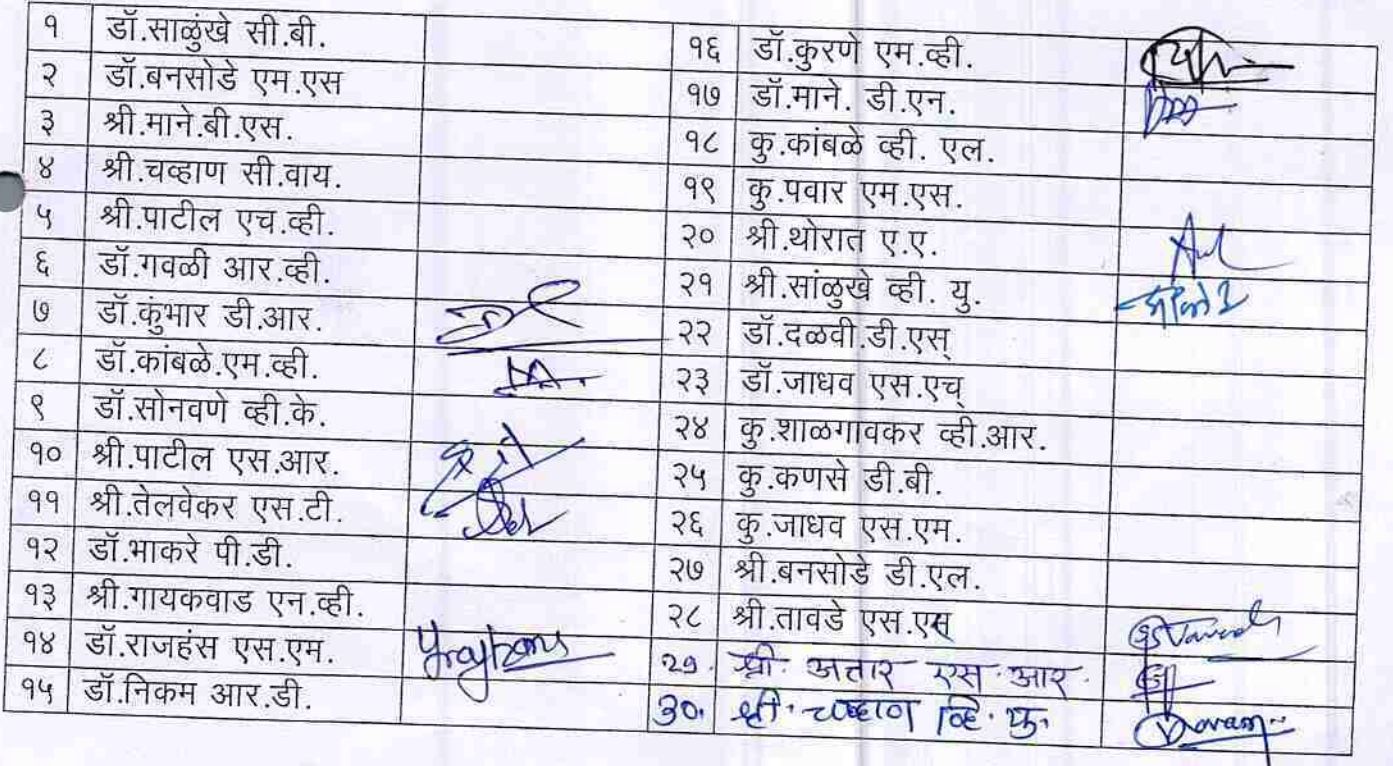 १ डॉ.साळुंखे सी.बी.
२ डॉ.बनसोडे एम.एस
३ श्री.माने.बी.एस.
४ श्री.चव्हाण सी.वाय.
५ श्री.पाटील एच.व्ही.
६ डॉ.गवळी आर.व्ही.
७ डॉ.कुंभार डी.आर.
८ डॉ.कांबळे.एम.व्ही.
९ डॉ.सोनवणे व्ही.के.
१० श्री.पाटील एस.आर.
११ श्री.तेलवेकर एस.टी.
१२ डॉ.भाकरे पी.डी.
१३ श्री.गायकवाड एन.व्ही.
१४ डॉ.राजहंस एस.एम.
१५ डॉ.निकम आर.डी.
१६ डॉ.कुरणे एम.व्ही.
१७ डॉ.माने. डी.एन.
१८ कु.कांबळे व्ही. एल.
१९ कु.पवार एम.एस.
२० श्री.थोरात ए.ए.
२१ श्री.सांळुखे व्ही. यु.
२२ डॉ.दळवी.डी.एस्
२३ डॉ.जाधव एस.एच्
२४ कु.शाळगावकर व्ही.आर.
२५ कु.कणसे डी.बी.
२६ कु.जाधव एस.एम.
२७ श्री.बनसोडे डी.एल.
२८ श्री.तावडे एस.एस
२९. श्री. अत्तार एस.आर.
३०. श्री. चव्हाण व्हि. के.